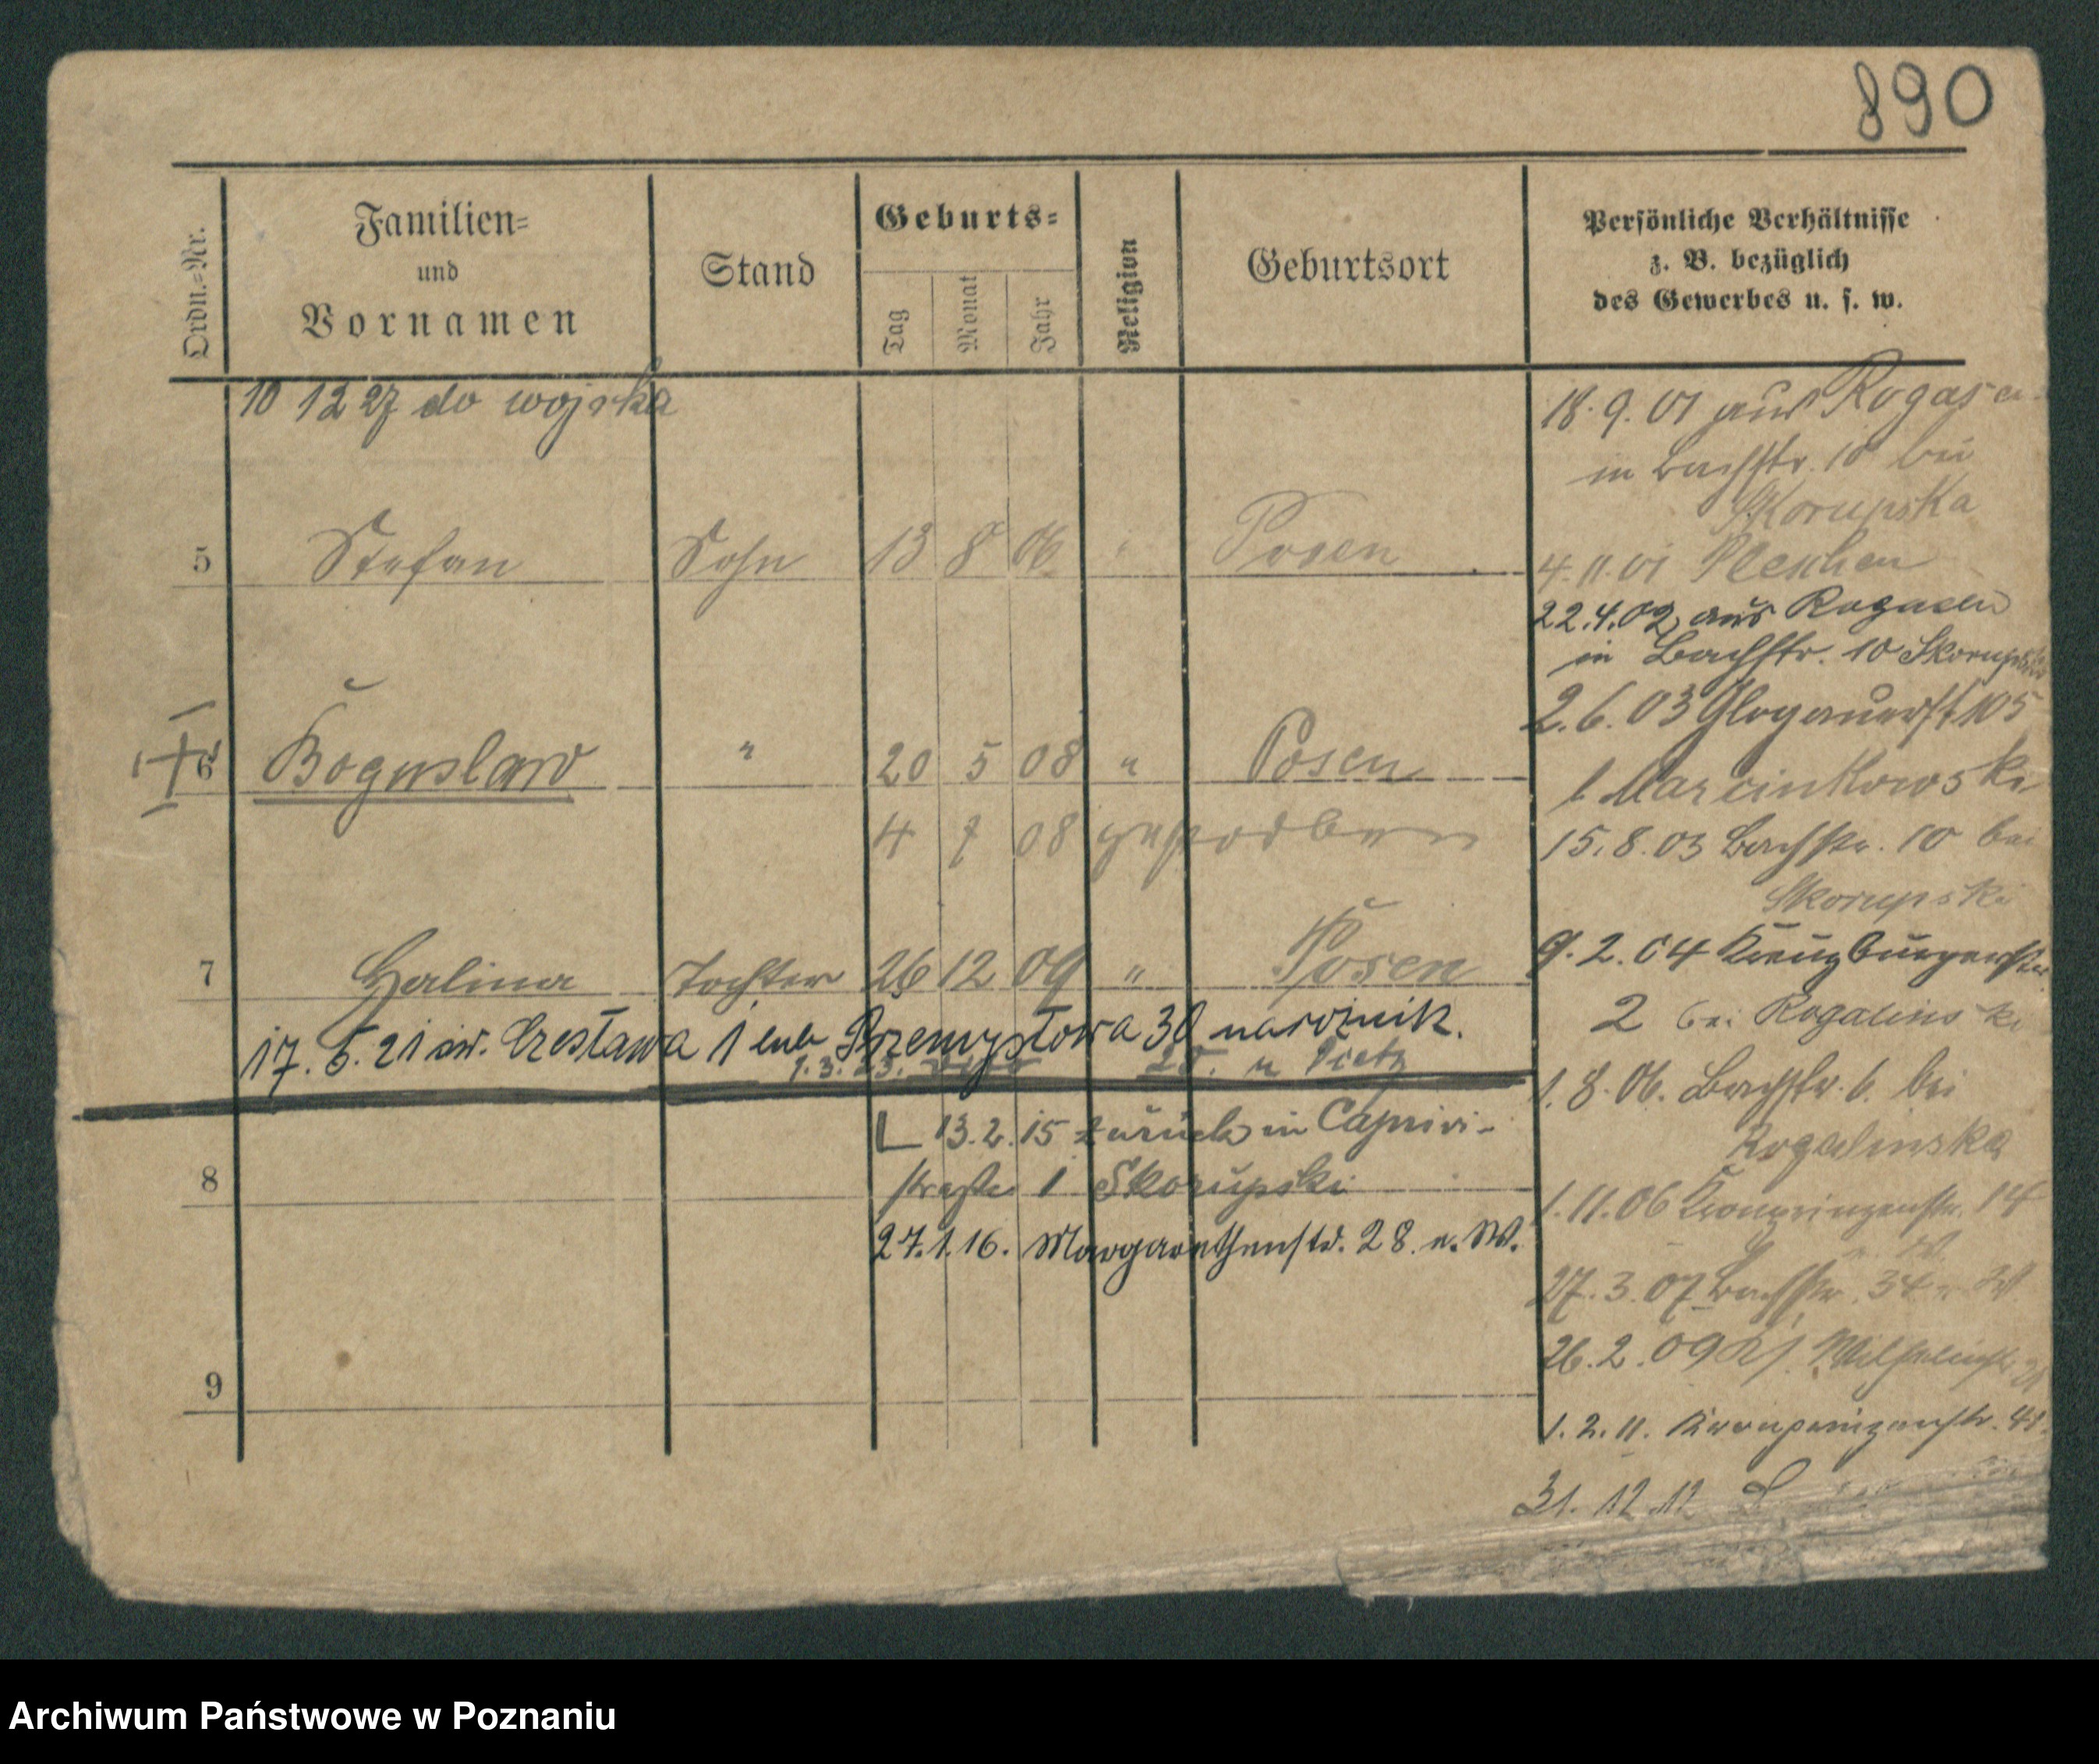 890
Ordn.=Nr.
Familien=
und
Vornamen
Stand
Geburts=
Tag
Monat
Jahr
Religion
Geburtsort
Persönliche Verhältnisse
z. B. bezüglich
des Gewerbes u. s. w.
10 12 27 do wojska
5 Stefan Sohn 13 8 06 " Posen
6 Boguslaw " 20 5 08 " Posen
4 7 08 gestorben
7 Halina Tochter 26 12 09 " Posen
17. 5. 21 św. Czesława 1 lub Przemysłowa 30 narożnik.
1.3.23. 25. u Pietz
L 13.2.15 zurück in Caprivi-
straße 1 Skorupski
8
27.1.16. Margarethenstr. 28. e. W.
9
18.9.01 aus Rogasen
in Bachstr. 10 bei
Skorupska
4.11.01 Pleschen
22.4.02 aus Rogasen
in Bachstr. 10 Skorupska
2.6.03 Glogauerst 105
b Marcinkowski
15.8.03 Bachstr. 10 bei
Skorupski
9.2.04 Kreuzburgerstr
2 bei Rogalinski
1.8.06. Bachstr. 6. bei
Rogalinska
1.11.06 Kronprinzenstr. 14
27.3.07 Bachstr. 34
26.2.09 Wilhelmstr.
1.2.11. Kronprinzenstr. 41.
31.12.12
Archiwum Państwowe w Poznaniu